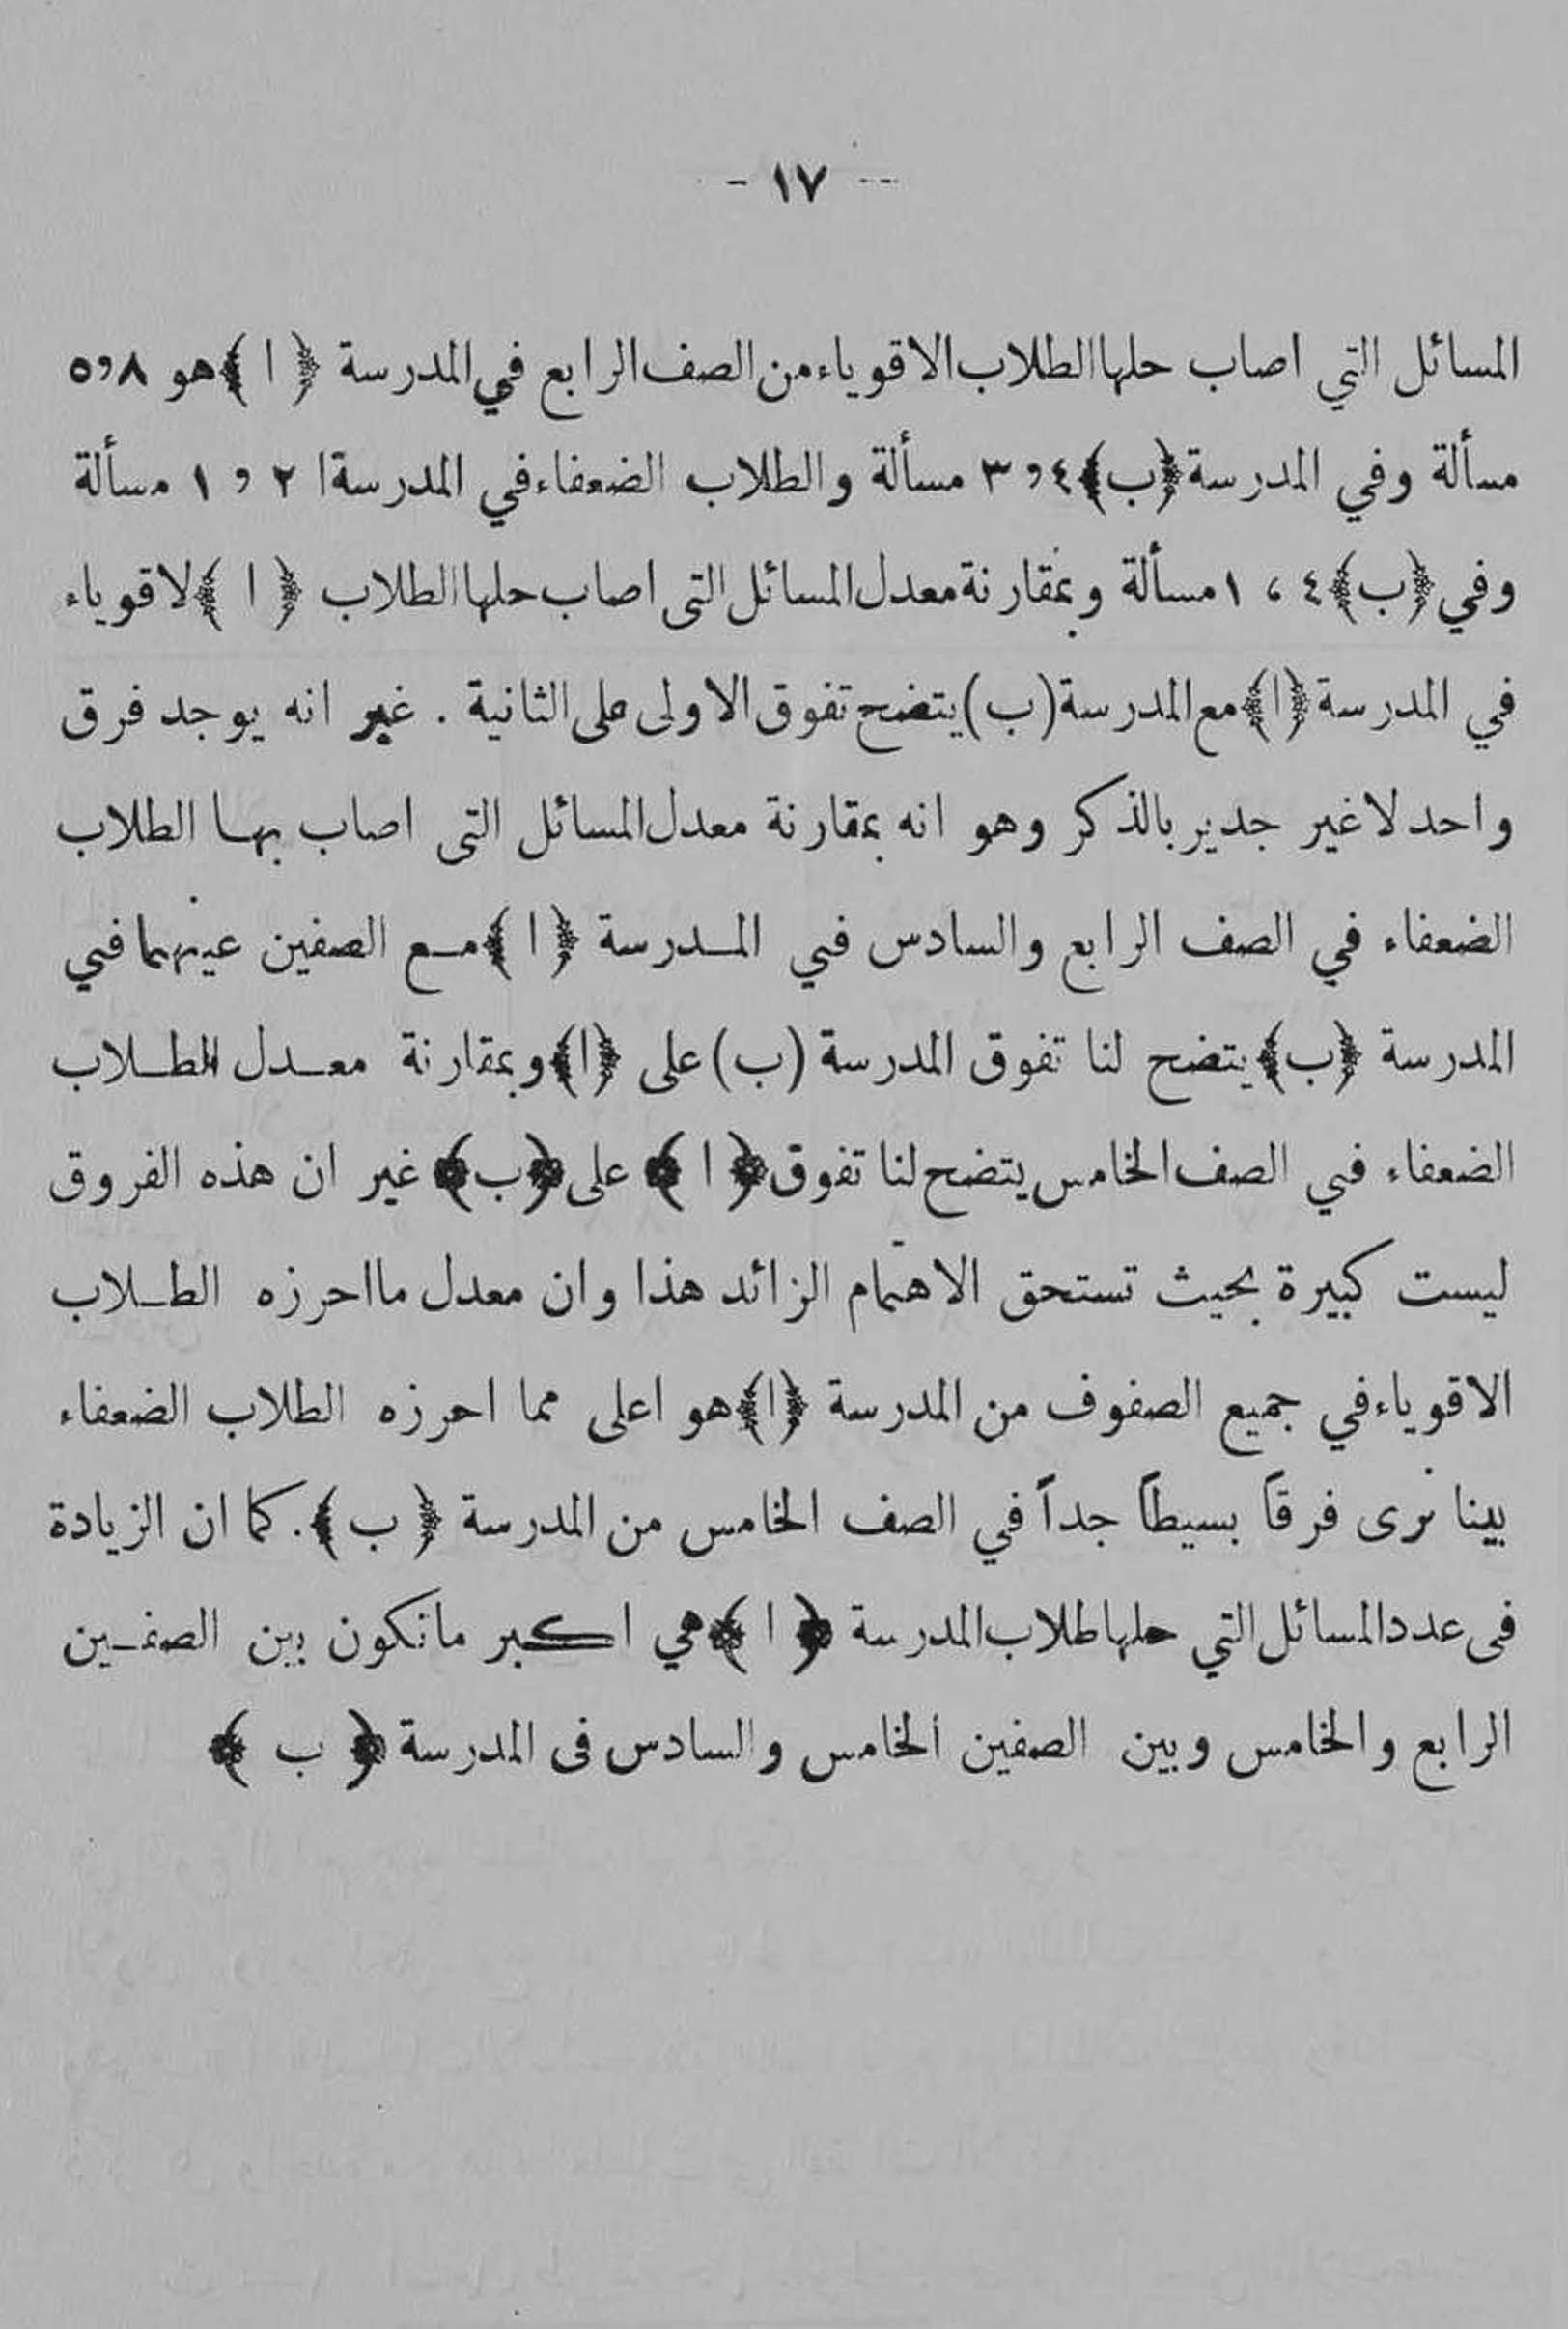 - ١٧ -
المسائل التي اصاب حلها الطلاب الاقوياء من الصف الرابع في المدرسة ﴿ ا ﴾ هو ٨و٥
مسألة وفي المدرسة ﴿ب﴾ ٤و٣ مسألة والطلاب الضعفاء في المدرسة ا ٢ و ١ مسألة
وفي ﴿ب﴾ ٤ ، ١ مسألة وبمقارنة معدل المسائل التى اصاب حلها الطلاب ﴿ ا ﴾ لاقوياء
في المدرسة ﴿ا﴾ مع المدرسة (ب) يتضح تفوق الاولى على الثانية . غير انه يوجد فرق
واحد لاغير جدير بالذكر وهو انه بمقارنة معدل المسائل التى اصاب بها الطلاب
الضعفاء في الصف الرابع والسادس في المـدرسة ﴿ ا ﴾ مـع الصفين عينهما في
المدرسة ﴿ب﴾ يتضح لنا تفوق المدرسة (ب) على ﴿ا﴾ وبمقارنة معـدل الطـلاب
الضعفاء في الصف الخامس يتضح لنا تفوق ﴿ ا ﴾ على ﴿ب﴾ غير ان هذه الفروق
ليست كبيرة بحيث تستحق الاهتمام الزائد هذا وان معدل مااحرزه الطـلاب
الاقوياء في جميع الصفوف من المدرسة ﴿ا﴾ هو اعلى مما احرزه الطلاب الضعفاء
بينا نرى فرقاً بسيطاً جداً في الصف الخامس من المدرسة ﴿ ب ﴾. كما ان الزيادة
فى عدد المسائل التي حلها طلاب المدرسة ﴿ ا ﴾ هي اكبر مانكون بين الصفـين
الرابع والخامس وبين الصفين الخامس والسادس فى المدرسة ﴿ ب ﴾